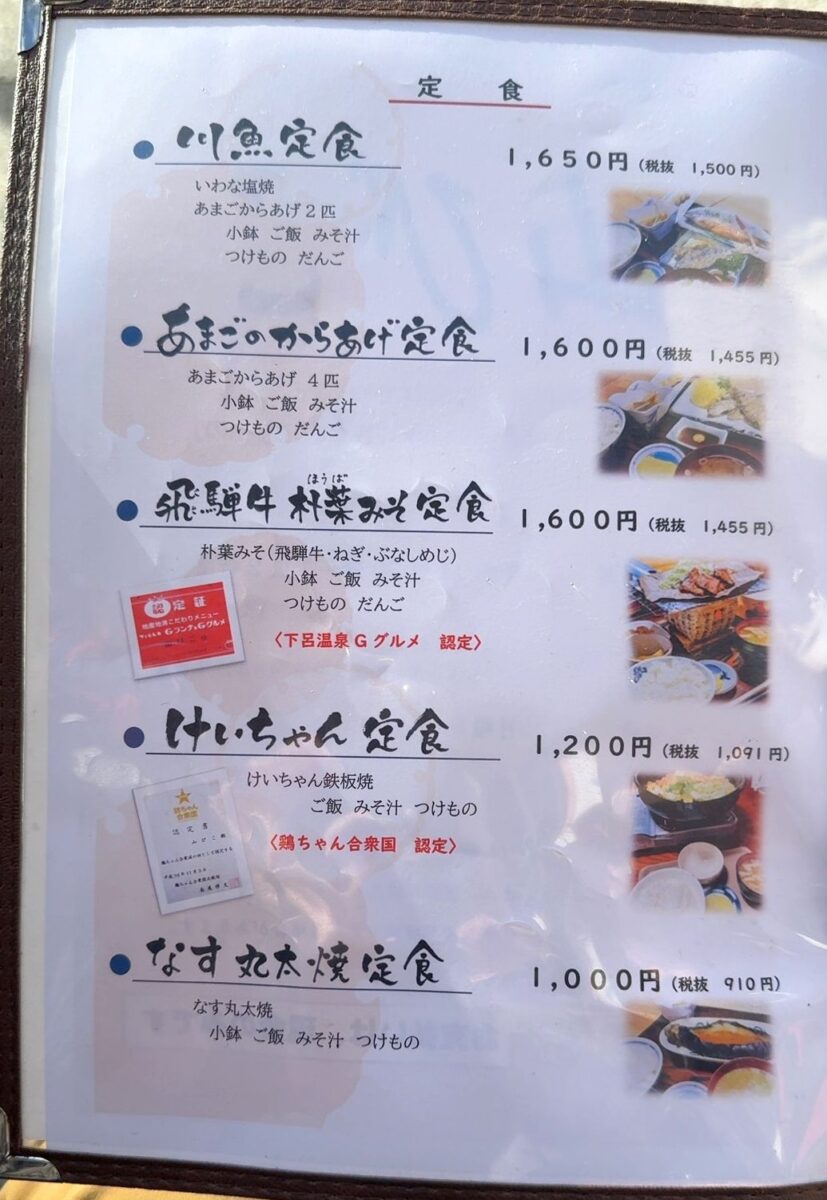 定 食
川魚定食 1,650円 (税抜 1,500円)
いわな塩焼
あまごからあげ2匹
小鉢 ご飯 みそ汁
つけもの だんご
あまごのからあげ定食 1,600円 (税抜 1,455円)
あまごからあげ 4匹
小鉢 ご飯 みそ汁
つけもの だんご
ほうば
飛騨牛 朴葉みそ定食 1,600円 (税抜 1,455円)
朴葉みそ(飛騨牛・ねぎ・ぶなしめじ)
小鉢 ご飯 みそ汁
つけもの だんご
認定証
地産地消こだわりメニュー
GランチとGグルメ
〈下呂温泉Gグルメ 認定〉
けいちゃん定食 1,200円 (税抜 1,091円)
けいちゃん鉄板焼
ご飯 みそ汁 つけもの
鶏ちゃん
合衆国
認定書
〈鶏ちゃん合衆国 認定〉
なす丸太焼定食 1,000円 (税抜 910円)
なす丸太焼
小鉢 ご飯 みそ汁 つけもの